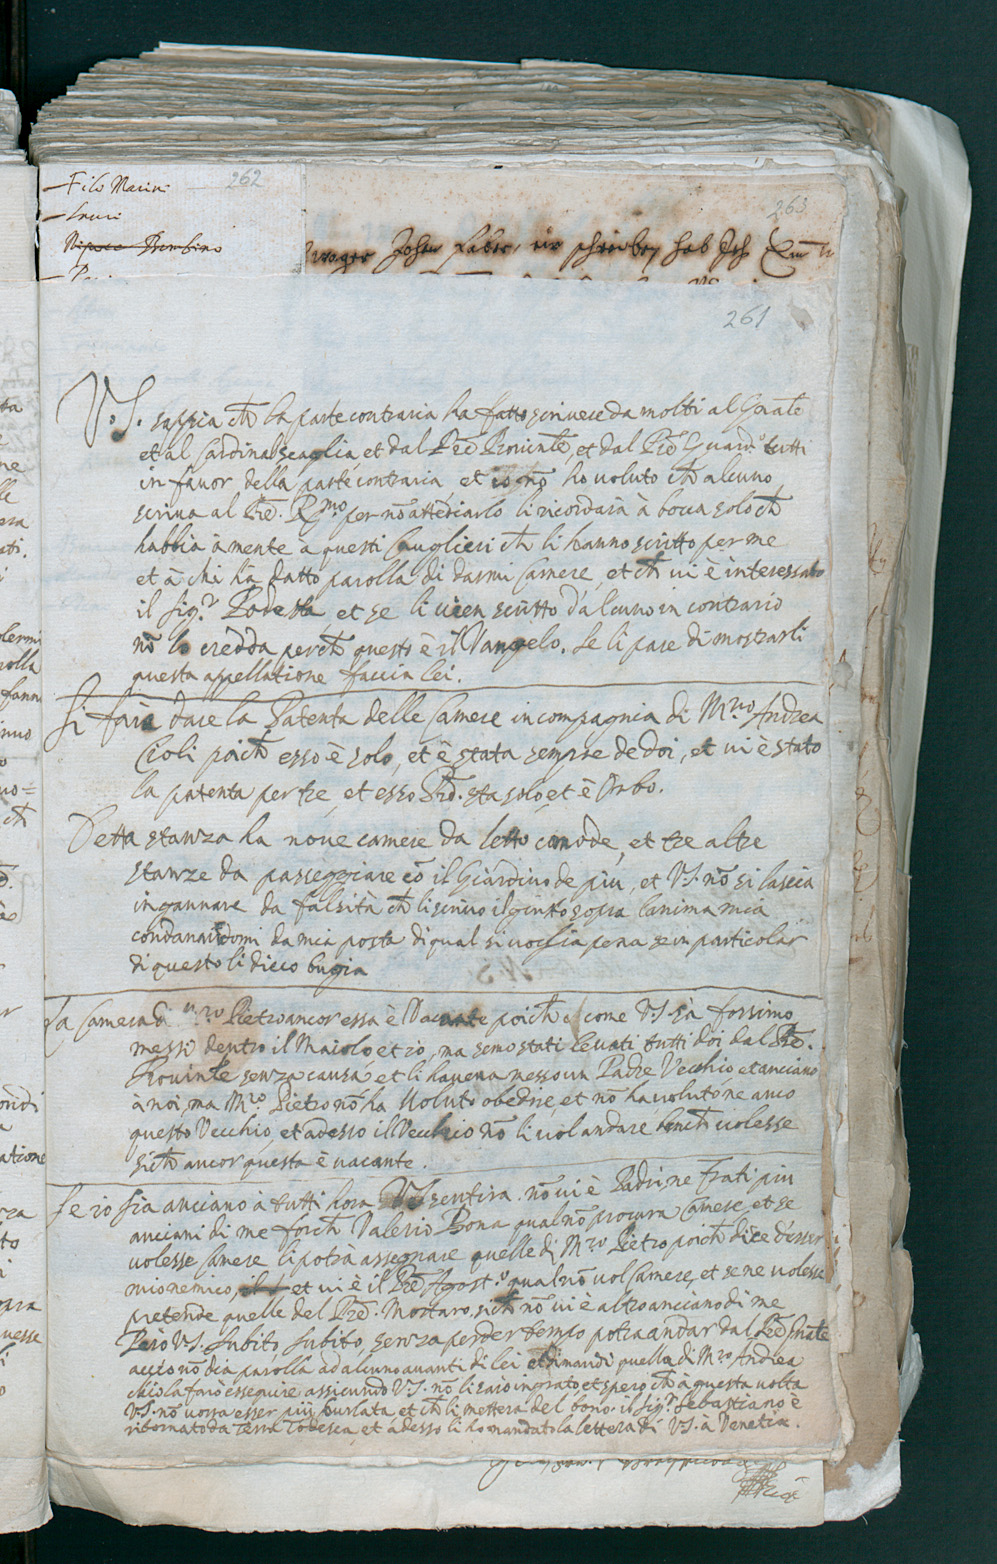 Filo Marini
262
Nipote Bembino
263
Johan Faber, ein schreiben hab Ich
261
V.S. sappia ch̃ la parte contraria ha fatto scrivere da molti al Gñale
et al Cardinal Scaglia, et dal Prẽ Provinẽle, et dal Prẽ Guard.º tutti
in favor della parte contraria, et io nõ ho voluto ch̃ alcuno
scriva al Prẽ. R.mo per nõ attediarlo li ricordarà à bocca solo ch̃
habbia à mente a questi Cauglieri ch̃ li hanno scritto per me
et à chi hà datto parolla di darmi Camere, et ch̃ vi è interessato
il Sig.r Podestà, et se li vien scritto d'alcuno in contrario
nõ lo credda perch̃ questo è il Vangelo. Se li pare di mostrarli
questa appellatione faccia lei.
Si farà dare la Patenta delle Camere in compagnia di M.ro Andrea
Cioli poich̃ esso è solo, et è stata sempre de doi, et vi è stato
la patenta per tre, et esso Prẽ. sta solo, et è Orbo.
Detta stanza ha nove camere da letto comode, et tre altre
stanze da passeggiare cõ il Giardino de piu, et V.S. nõ si lascia
ingannare da falsità ch̃ li scrivo il giusto sopra l'anima mia
condanandomi da mia posta di qual si voglia pena se in particolar
di questo li dico bugia
La Camera di M.ro Pietro ancor essa è Vacante poich̃ come V.S. sà fossimo
messi dentro il Maiolo et io, ma semo stati levati tutti doi dal Prẽ.
Provinẽle senza causa, et li haveva messo un Padre Vecchio et anciano
à noi, ma M.ro Pietro nõ ha Voluto obedire, et nõ ha voluto ne anco
questo Vecchio, et adesso il Vecchio nõ li vol andare bench̃ volesse
sich̃ ancor questa è vacante.
Se io sia anciano à tutti hora V.S. sentira. nõ vi è Padri ne Frati piu
anciani di me forch̃ Valerio Bona qual nõ procura Camere, et se
volesse Camere li potrà assegnare quelle di M.ro Pietro poich̃ dice d'esser
mio nemico, et vi è il Prẽ Agost.º qual nõ vol Camere, et se ne volesse
pretende quelle del Prẽ. Mortaro, sich̃ nõ vi è altro anciano di me
Però V.S. subito, subito, senza perder tempo potra andar dal Prẽ Gñale
accio nõ dia parolla ad alcuno avanti di lei et dimandi quella di M.ro Andrea
ch'io la farò esseguire assicurando V.S. nõ li sarò ingrato et spero ch̃ à questa volta
V.S. nõ vorra esser piu burlata et ch̃ li mettera del bono. il Sig.r Sebastiano è
ritornato da Terra Todesca, et adesso li ho mandato la lettera di V.S. à Venetia.